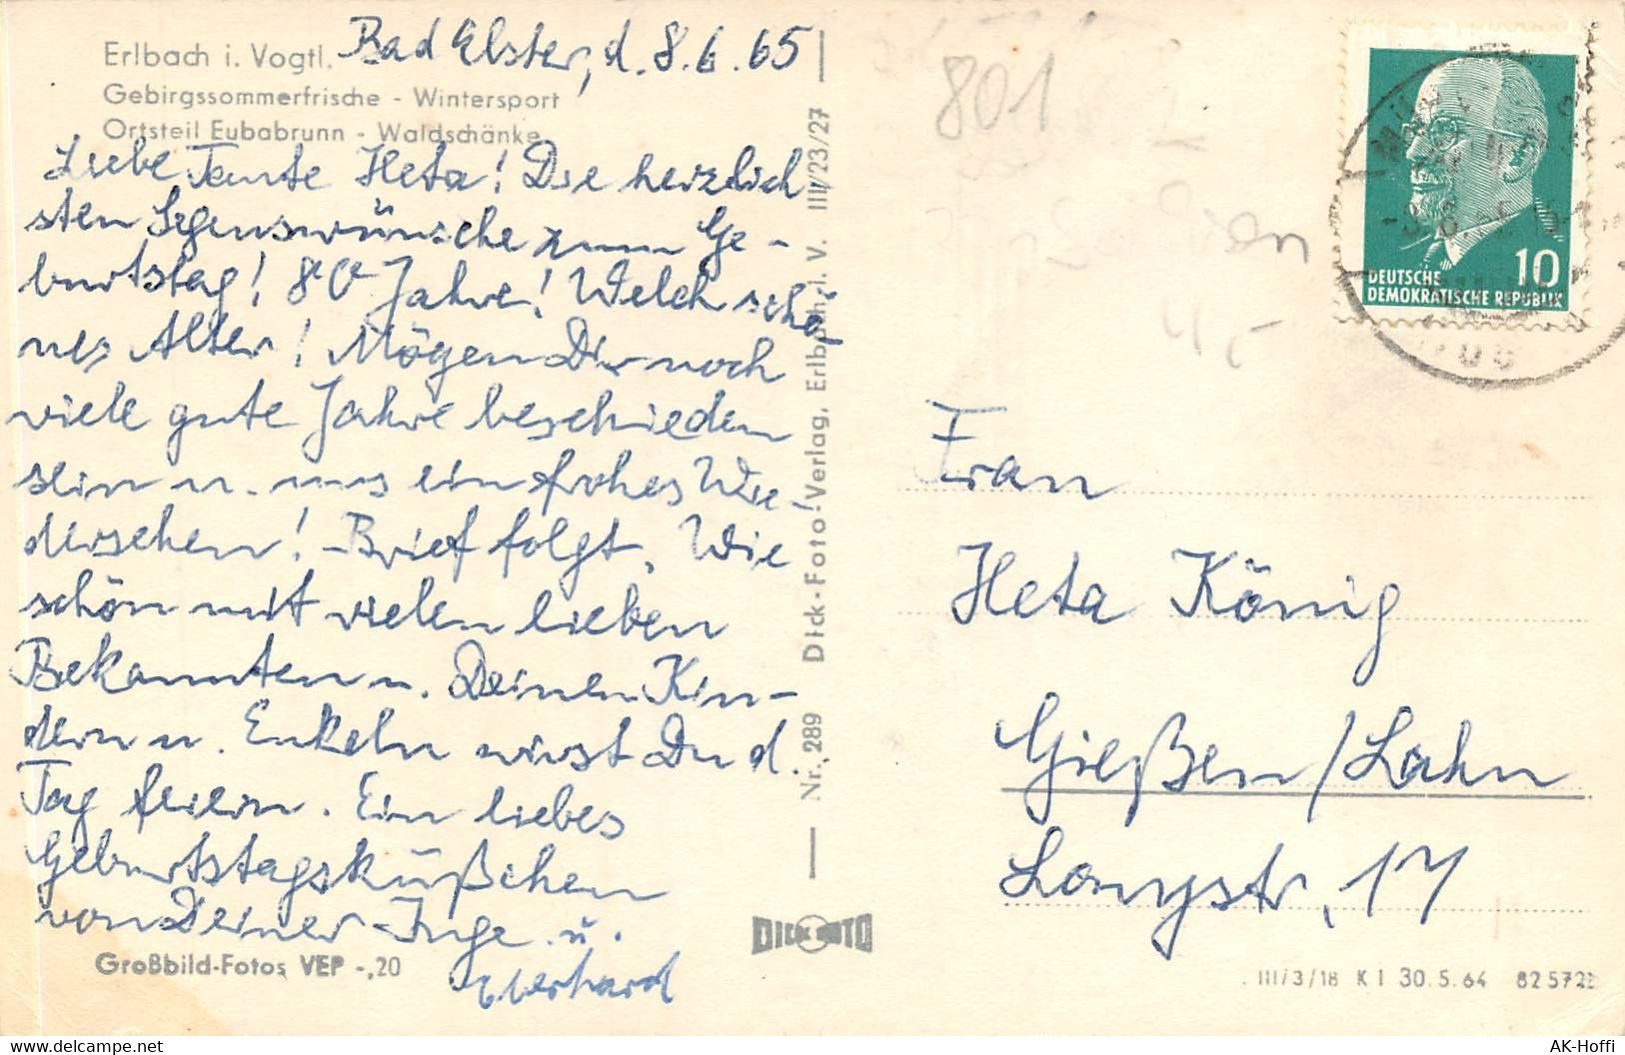 Erlbach i. Vogtl.
Gebirgssommerfrische - Wintersport
Ortsteil Eubabrunn - Waldschänke
Bad Elster, d. 8.6.65
Liebe Tante Heta! Die herzlich
sten Segenswünsche zum Ge-
burtstag! 80 Jahre! Welch schö
nes Alter! Mögen Dir noch
viele gute Jahre beschieden
sein u. uns ein frohes Wie-
dersehen! Brief folgt. Wie
schön mit vielen lieben
Bekannten u. Deinen Kin-
dern u. Enkeln wirst Du d.
Tag feiern. Ein liebes
Geburtstagsküßchen
von Deiner Inge u.
Eberhard
Großbild-Fotos VEP -,20
Nr. 289 Dick-Foto-Verlag, Erlbach i. V. III/23/27
DICK FOTO
801
10
DEUTSCHE
DEMOKRATISCHE REPUBLIK
Frau
Heta König
Gießen/Lahn
Longstr. 17
III/3/18 K I 30.5.64 82572
delcampe.net
AK-Hoffi